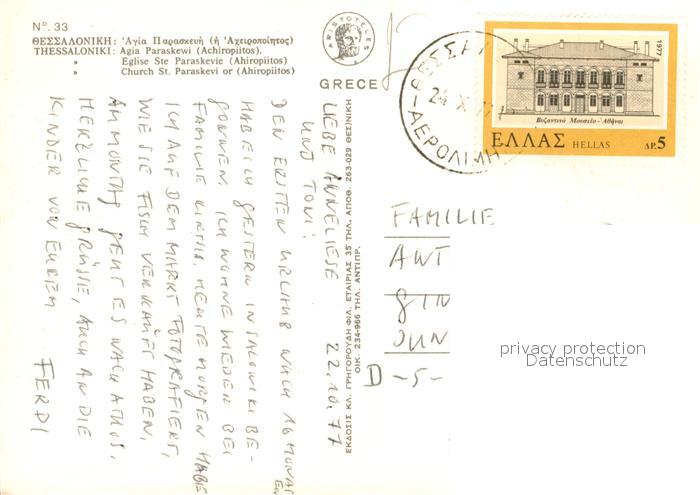 N°. 33
ΘΕΣΣΑΛΟΝΙΚΗ: Ἁγία Παρασκευή (ἤ Ἀχειροποίητος)
THESSALONIKI: Agia Paraskewi (Achiropoiitos).
» Eglise Ste Paraskevie (Ahiropiitos)
» Church St. Paraskevi or (Ahiropiitos)
ARISTOTELES
GREECE
ΕΚΔΟΣΙΣ ΚΛ. ΓΡΗΓΟΡΟΥΔΗ ΦΙΛ. ΕΤΑΙΡΙΑΣ 35 ΤΗΛ. ΑΠΟΘ. 263-029 ΘΕΣ)ΝΙΚΗ
ΟΙΚ. 234-966 ΤΗΛ. ΑΝΤΙΠΡ.
22.10.77
LIEBE ANNELIESE
UND TONI!
DEN ERSTEN URLAUB NACH 16 MONAT
EN
HABE ICH GESTERN IN SALONIKI BE-
GONNEN. ICH WOHNE WIEDER BEI
FAMILIE HEUTE MORGEN HABE
ICH AUF DEM MARKT FOTOGRAFIERT,
WIE SIE FISCH VERKAUFT HABEN.
AM MONTAG GEHT ES NACH ATHOS.
HERZLICHE GRÜSSE, AUCH AN DIE
KINDER VON EUREM
FERDI
ΘΕΣΣΑΛ
24 X 77
ΑΕΡΟΛΙΜΗ
1977
Βυζαντινό Μουσείο - Ἀθῆναι
ΕΛΛΑΣ HELLAS ΔΡ. 5
FAMILIE
D-5-
privacy protection
Datenschutz